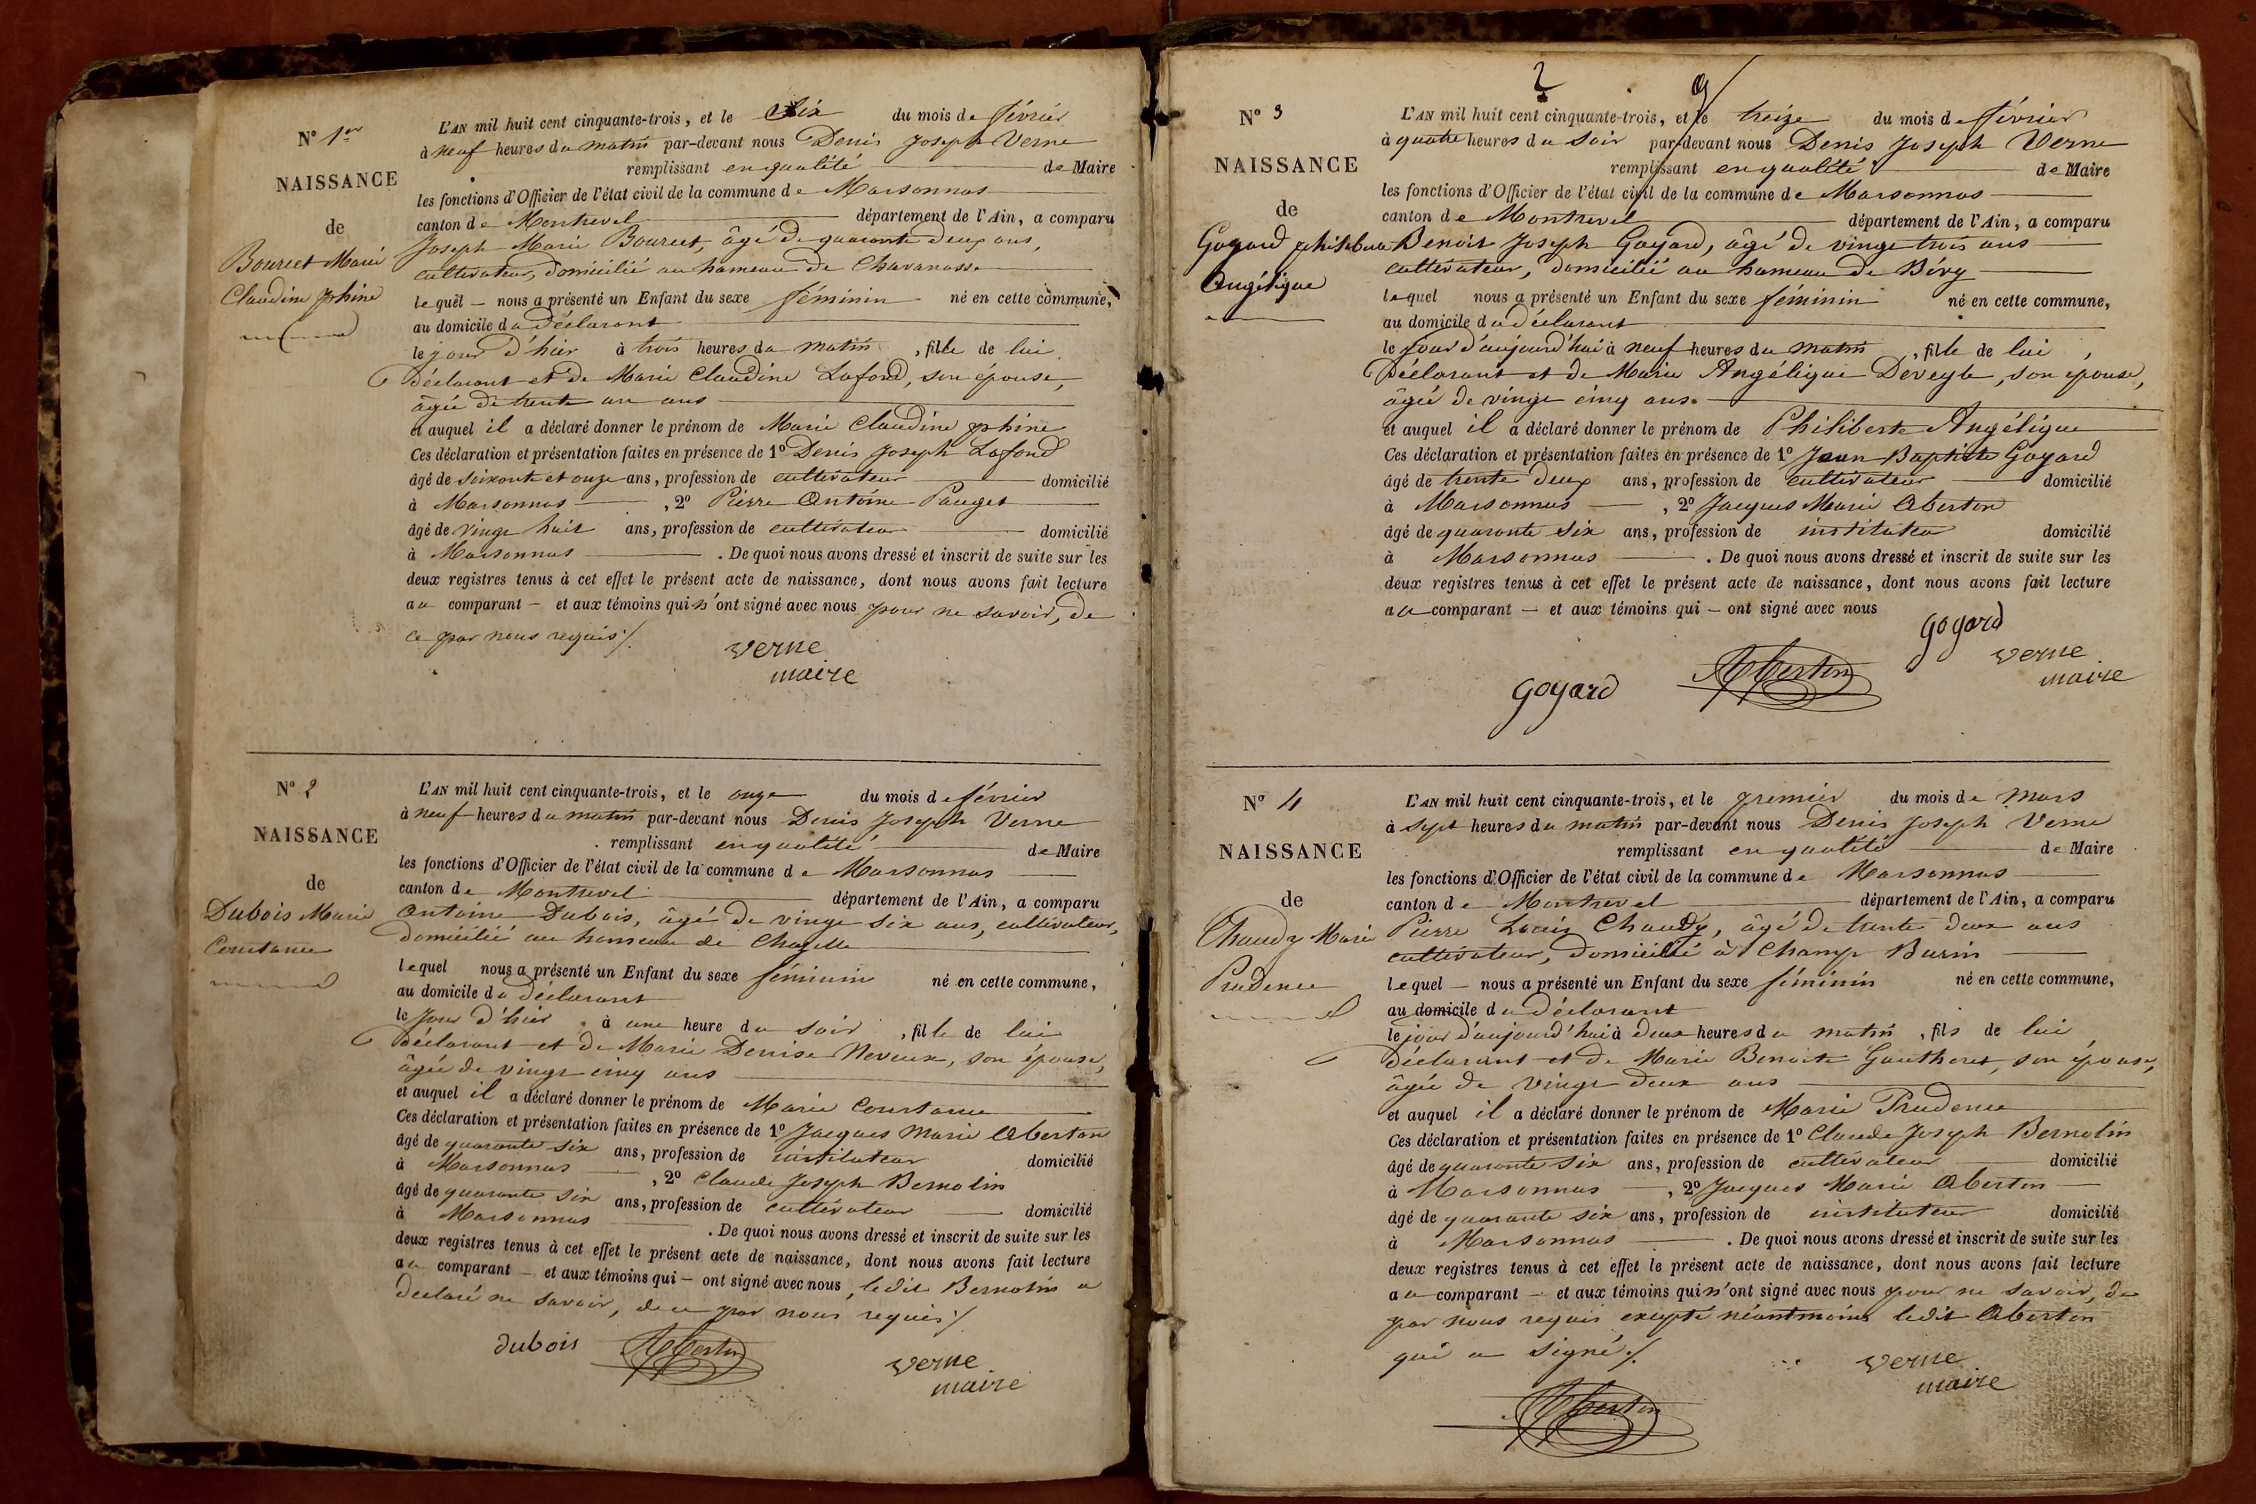 N° 1er
NAISSANCE
de
Bourcet Marie
Claudine Jphine
L'AN mil huit cent cinquante-trois, et le six du mois de février
à neuf heures du matin par-devant nous Denis Joseph Verne
remplissant en qualité de Maire
les fonctions d'Officier de l'état civil de la commune de Marsonnas
canton de Montrevel département de l'Ain, a comparu
Joseph Marie Bourcet, âgé de quarante deux ans,
cultivateur, domicilié au hameau de Chavanosse
lequel — nous a présenté un Enfant du sexe féminin né en cette commune,
au domicile du déclarant
le jour d'hier à trois heures du matin, fille de lui
déclarant et de Marie Claudine Lafond, son épouse,
âgée de trente un ans
et auquel il a déclaré donner le prénom de Marie Claudine Jphine
Ces déclaration et présentation faites en présence de 1° Denis Joseph Lafond
âgé de soixante et onze ans, profession de cultivateur domicilié
à Marsonnas, 2° Pierre Antoine Pauget
âgé de vingt huit ans, profession de cultivateur domicilié
à Marsonnas. De quoi nous avons dressé et inscrit de suite sur les
deux registres tenus à cet effet le présent acte de naissance, dont nous avons fait lecture
au comparant — et aux témoins qui n'ont signé avec nous pour ne savoir, de
ce par nous requis ./.
verne
maire
N° 2
NAISSANCE
de
Dubois Marie
Constance
L'AN mil huit cent cinquante-trois, et le onze du mois de février
à neuf heures du matin par-devant nous Denis Joseph Verne
remplissant en qualité de Maire
les fonctions d'Officier de l'état civil de la commune de Marsonnas
canton de Montrevel département de l'Ain, a comparu
Antoine Dubois, âgé de vingt six ans, cultivateur,
domicilié au hameau de Chapelle
lequel nous a présenté un Enfant du sexe féminin né en cette commune,
au domicile du déclarant
le jour d'hier à une heure du soir, fille de lui
déclarant et de Marie Denise Neveux, son épouse,
âgée de vingt cinq ans
et auquel il a déclaré donner le prénom de Marie Constance
Ces déclaration et présentation faites en présence de 1° Jacques Marie Aberton
âgé de quarante six ans, profession de instituteur domicilié
à Marsonnas, 2° Claude Joseph Bernolin
âgé de quarante six ans, profession de cultivateur domicilié
à Marsonnas. De quoi nous avons dressé et inscrit de suite sur les
deux registres tenus à cet effet le présent acte de naissance, dont nous avons fait lecture
au comparant — et aux témoins qui — ont signé avec nous, ledit Bernolin a
déclaré ne savoir, de ce par nous requis ./.
dubois Aberton verne
maire
N° 3
NAISSANCE
de
Goyard Philiberte
Angélique
L'AN mil huit cent cinquante-trois, et le treize du mois de février
à quatre heures du soir par-devant nous Denis Joseph Verne
remplissant en qualité de Maire
les fonctions d'Officier de l'état civil de la commune de Marsonnas
canton de Montrevel département de l'Ain, a comparu
Benoit Joseph Goyard, âgé de vingt trois ans
cultivateur, domicilié au hameau de Bévy
lequel nous a présenté un Enfant du sexe féminin né en cette commune,
au domicile du déclarant
le jour d'aujourd'hui à neuf heures du matin, fille de lui,
déclarant et de Marie Angélique Deveyle, son épouse,
âgée de vingt cinq ans.
et auquel il a déclaré donner le prénom de Philiberte Angélique
Ces déclaration et présentation faites en présence de 1° Jean Baptiste Goyard
âgé de trente deux ans, profession de cultivateur domicilié
à Marsonnas, 2° Jacques Marie Aberton
âgé de quarante six ans, profession de instituteur domicilié
à Marsonnas. De quoi nous avons dressé et inscrit de suite sur les
deux registres tenus à cet effet le présent acte de naissance, dont nous avons fait lecture
au comparant — et aux témoins qui — ont signé avec nous
Goyard
Goyard Aberton verne
maire
N° 4
NAISSANCE
de
Chaudy Marie
Prudence
L'AN mil huit cent cinquante-trois, et le premier du mois de mars
à sept heures du matin par-devant nous Denis Joseph Verne
remplissant en qualité de Maire
les fonctions d'Officier de l'état civil de la commune de Marsonnas
canton de Montrevel département de l'Ain, a comparu
Pierre Louis Chaudy, âgé de trente deux ans
cultivateur, domicilié à Champ Burin
lequel — nous a présenté un Enfant du sexe féminin né en cette commune,
au domicile du déclarant
le jour d'aujourd'hui à deux heures du matin, fils de lui
déclarant et de Marie Benoite Gautheret, son épouse,
âgée de vingt deux ans
et auquel il a déclaré donner le prénom de Marie Prudence
Ces déclaration et présentation faites en présence de 1° Claude Joseph Bernolin
âgé de quarante six ans, profession de cultivateur domicilié
à Marsonnas, 2° Jacques Marie Aberton
âgé de quarante six ans, profession de instituteur domicilié
à Marsonnas. De quoi nous avons dressé et inscrit de suite sur les
deux registres tenus à cet effet le présent acte de naissance, dont nous avons fait lecture
au comparant — et aux témoins qui n'ont signé avec nous pour ne savoir, de
par nous requis excepté néantmoins ledit Aberton
qui a signé ./.
verne
maire
Aberton